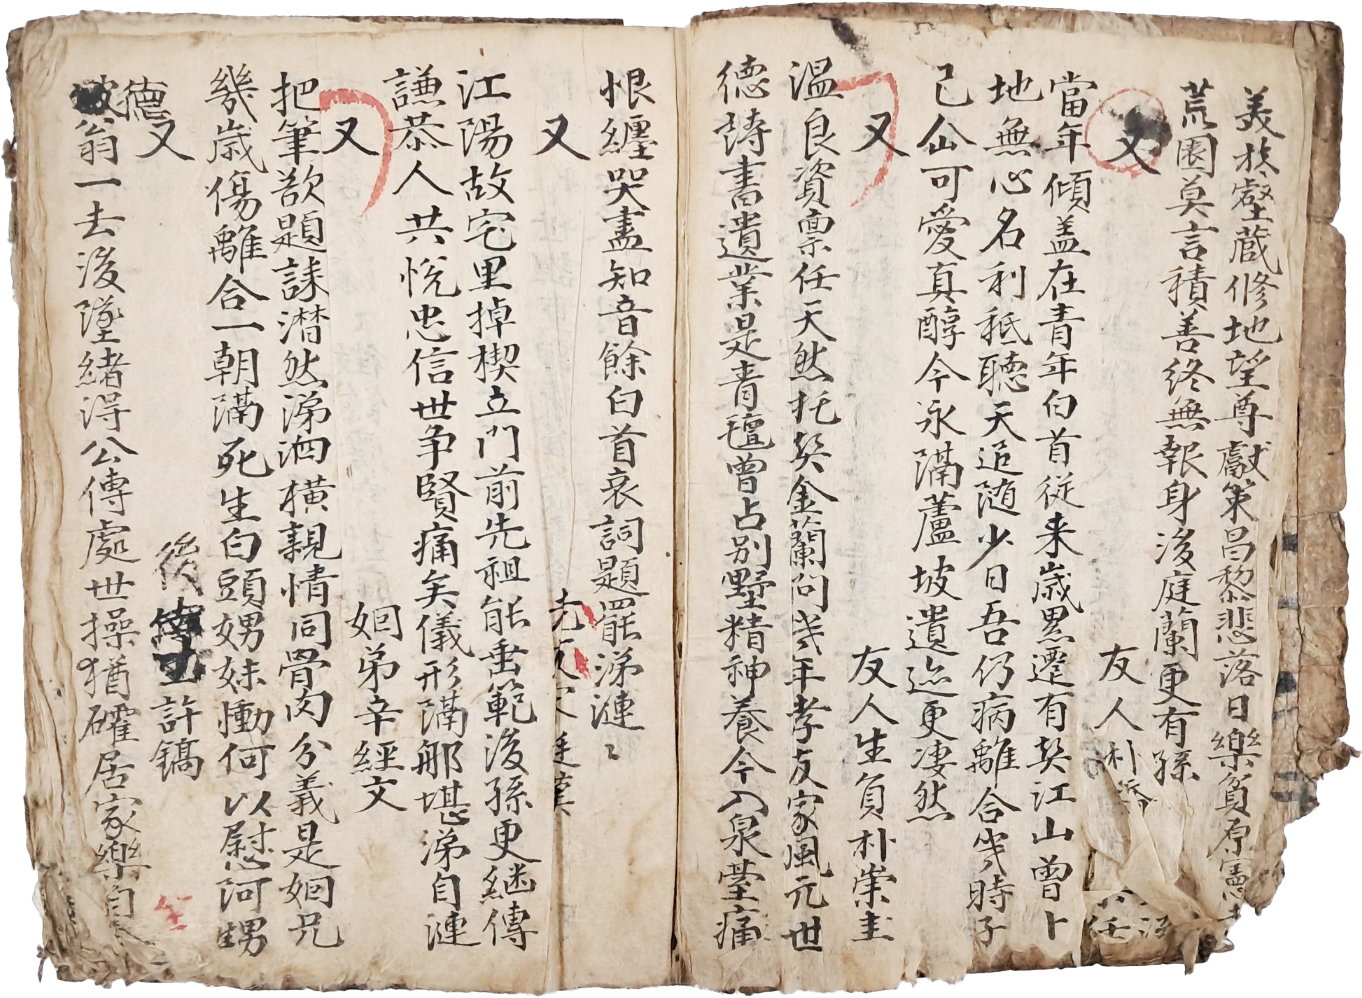 美於壑藏修地望尊獻策昌黎悲落日樂貧原憲
荒園莫言積善終無報身後庭蘭更有孫
又
友人朴
當年傾盖在青年白首從来歲累遷有契江山曾卜
地無心名利秪聽天追隨少日吾仍病離合幾時子
已仙可愛真醇今永隔蘆坡遺迹更凄然
又
友人生負朴崇圭
溫良資禀任天然托契金蘭问幾年孝友家風元世
德詩書遺業是青氊曾占別墅精神養今入泉臺痛
恨纏哭盡知音餘白首哀詞題罷涕漣〻
又
江陽故宅里掉楔立門前先祖能垂範後孫更継傳
謙恭人共悅忠信世争賢痛矣儀形隔那堪涕自漣
又
姻弟辛經文
把筆欲題誄潸然涕泗横親情同骨肉分義是姻兄
幾歲傷離合一朝隔死生白頭嫂妹慟何以慰阿甥
又
後
許鎬
德
坡翁一去後墜緒得公傳處世操猶確居家樂自